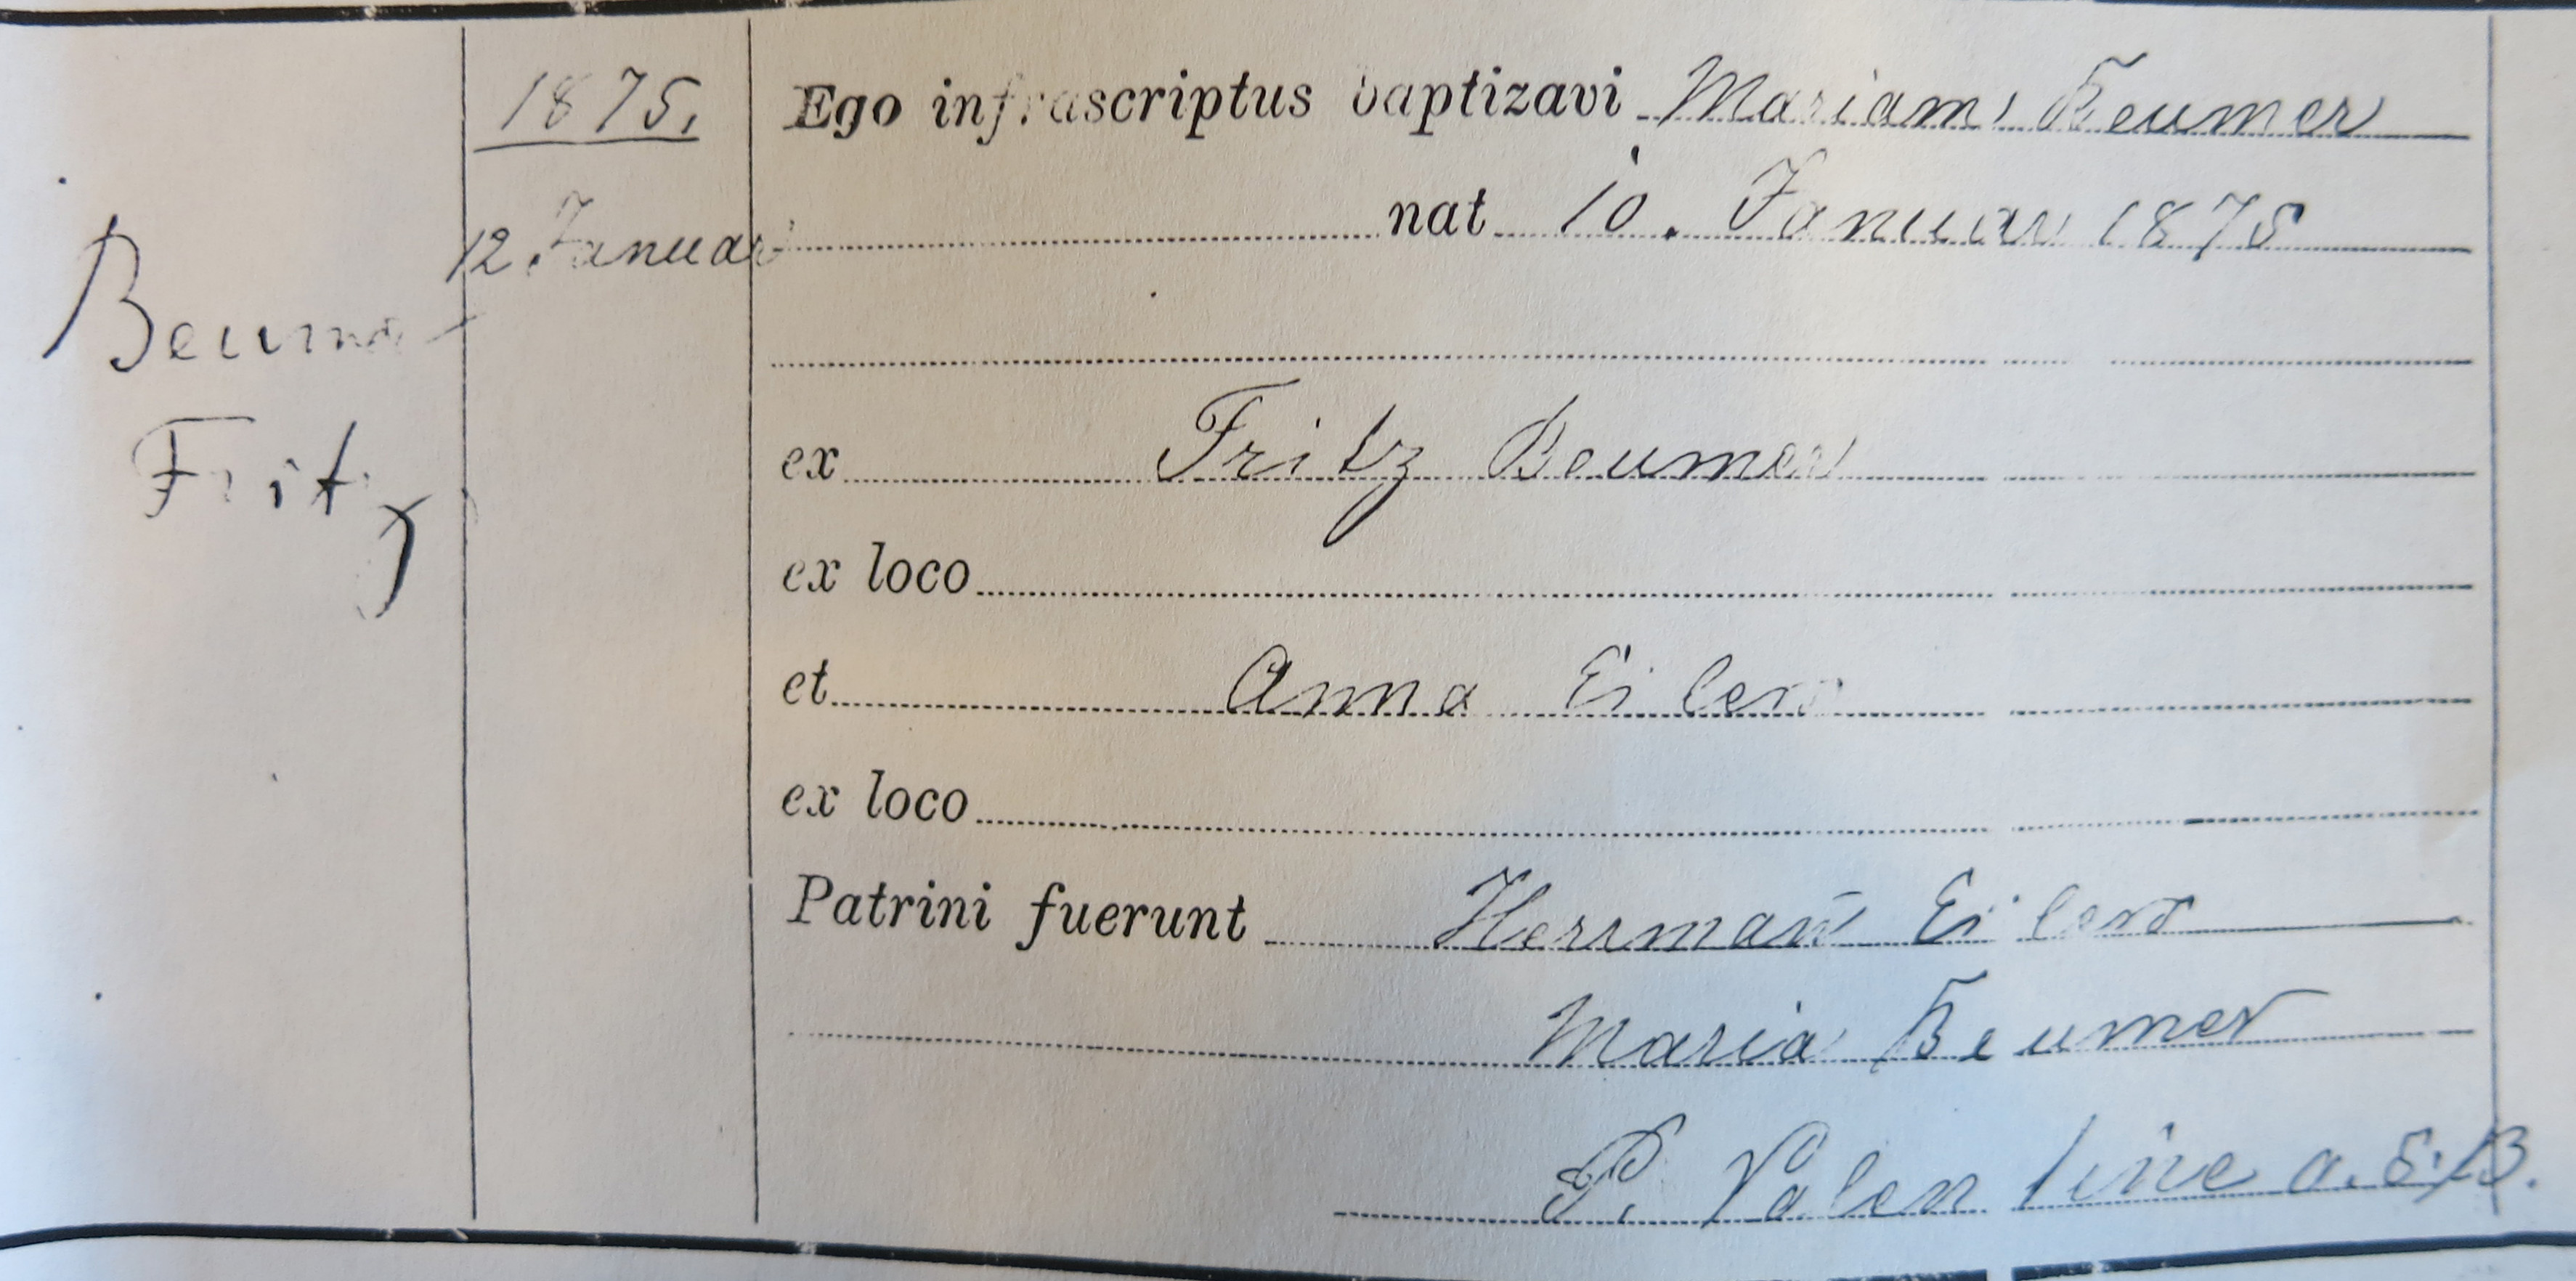 1875.
12. Januar
Beumer
Fritz
Ego infrascriptus baptizavi Mariam Beumer
nat 10. Januar 1875
ex Fritz Beumer
ex loco
et Anna Eilers
ex loco
Patrini fuerunt Herrman̄ Eilers
Maria Beumer
P. Valentine a. S. B.